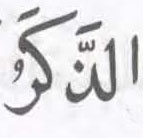 الذَّكَرُ